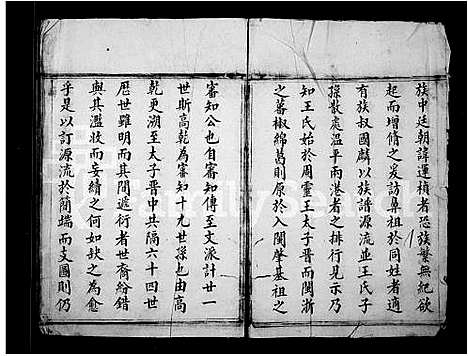 族中廷朝諱運楨者恐族繁無紀欲
起而增脩之爰訪鼻祖於同姓者適
有族叔國麟以族譜源流並王氏子
孫散處温平兩港者之排行見示乃
知王氏始於周靈王太子晉而閩浙
之蕃椒綿蔦則原於入閩肇基祖之
審知公也自審知傳至文派計廿一
世斯高乾為審知十九世孫也由高
乾更溯至太子晉中共隔六十四世
歷世雖明而其間遞衍者世裔紛錯
與其濫收而妄續之何如缺之為愈
乎是以訂源流於簡端而支圖則仍